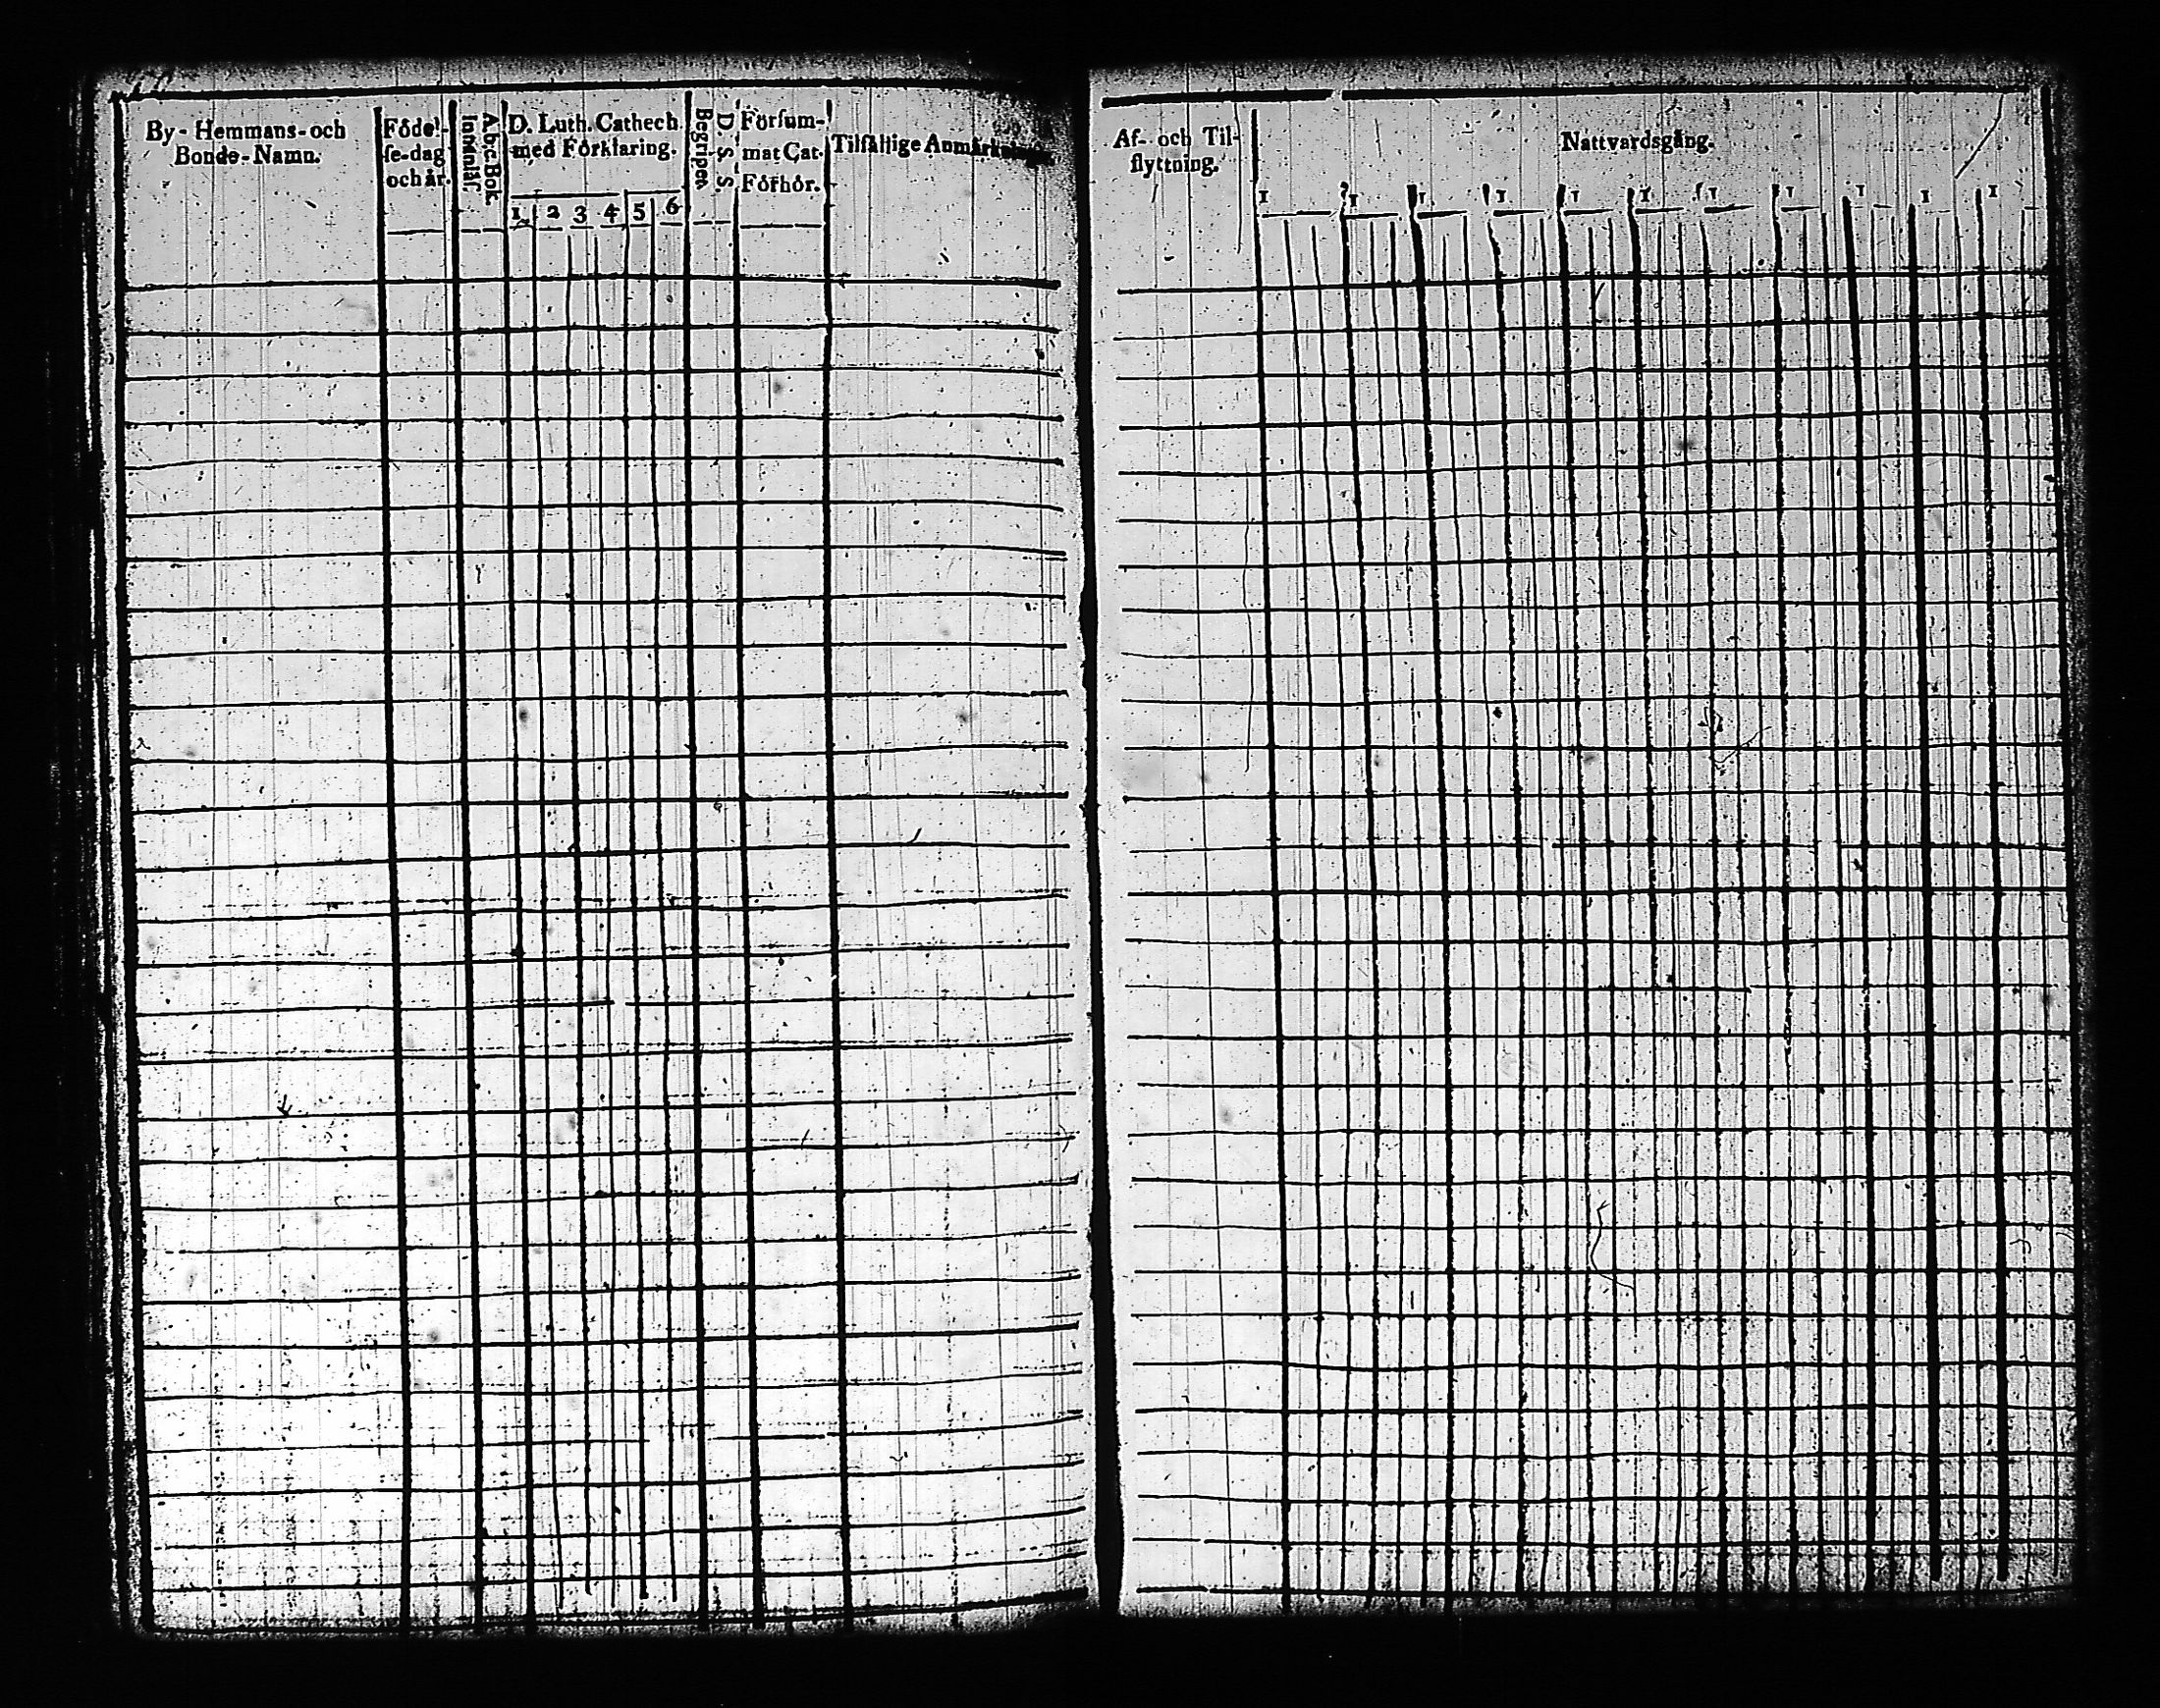 By- Hemmans- och
Bonde-Namn.
Födel-
se-dag
och år.
A.b.c. Bok.
Innanlär.
D. Luth. Cathech
med Förklaring.
1 2 3 4 5 6
Begriper.
D. S. S.
Försum-
mat Cat.
Förhör.
Tilfällige Anmärkningar
Af- och Til-
flyttning.
Nattvardsgång.
1 1 1 1 1 1 1 1 1 1 1